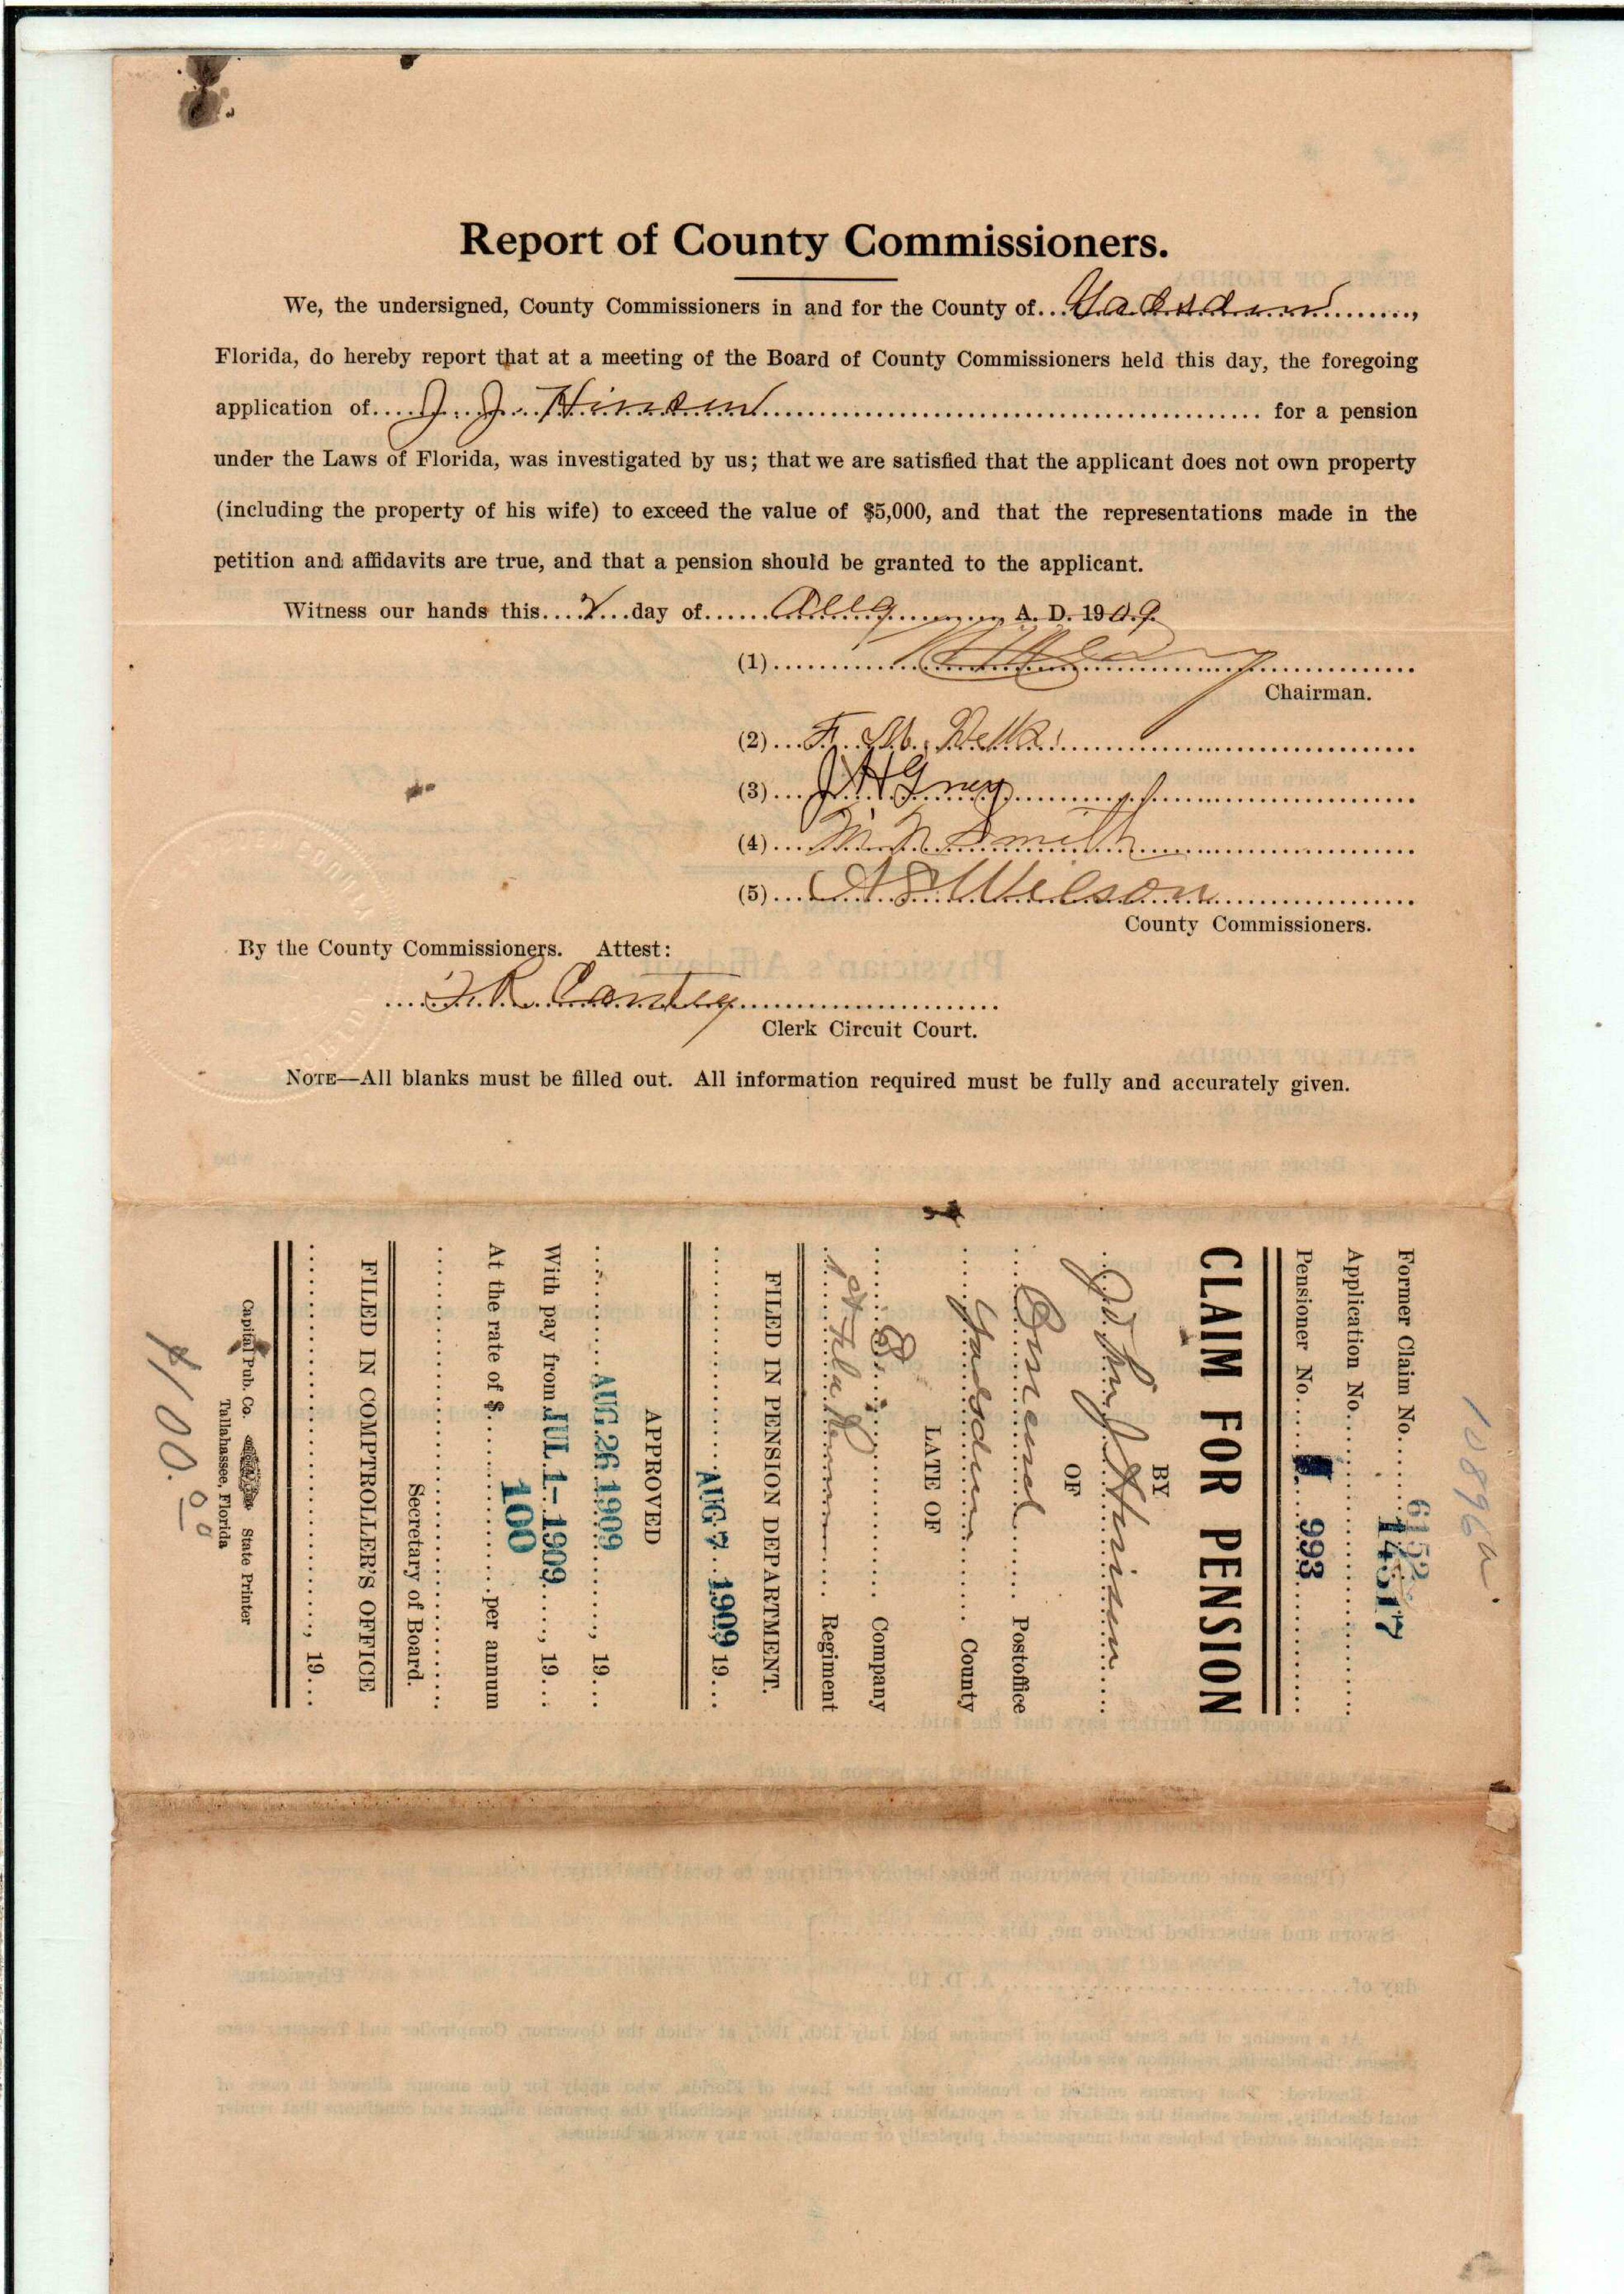 Report of County Commissioners.
We, the undersigned, County Commissioners in and for the County of...Gadsden.......,
Florida, do hereby report that at a meeting of the Board of County Commissioners held this day, the foregoing
application of....J. J. Hinson.... for a pension
under the Laws of Florida, was investigated by us; that we are satisfied that the applicant does not own property
(including the property of his wife) to exceed the value of $5,000, and that the representations made in the
petition and affidavits are true, and that a pension should be granted to the applicant.
Witness our hands this.......day of......Aug......, A. D. 1909.
(1)
Chairman.
(2)...F. M.
(3)...J H Gray
(4)...M. N. Smith
(5)...A S Wilson
County Commissioners.
By the County Commissioners. Attest:
Clerk Circuit Court.
NOTE—All blanks must be filled out. All information required must be fully and accurately given.
10896
Former Claim No.... 6152
14517
Application No.
Pensioner No..... 993
CLAIM FOR PENSION
BY
J. Hinson
OF
Concord...... Postoffice
Gadsden...... County
LATE OF
Company
1st Fla Regiment
FILED IN PENSION DEPARTMENT.
AUG 7 1909 19...
APPROVED
AUG. 26 1909, 19...
With pay from JUL 1- 1909, 19...
At the rate of $...100...per annum
Secretary of Board.
FILED IN COMPTROLLER'S OFFICE
, 19...
Capital Pub. Co. State Printer
Tallahassee, Florida
100.00